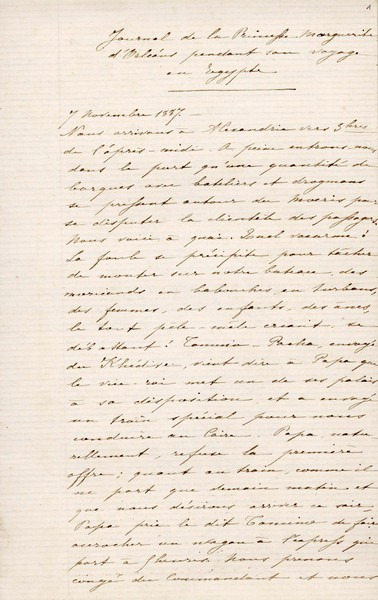 Journal de la Princesse Marguerite
d'Orléans pendant son voyage
en Egypte
7 Novembre 1887. —
Nous arrivons à Alexandrie vers 3 hres
de l'après-midi. A peine entrons nous
dans le port qu'une quantité de
barques avec bateliers et drogmans
se pressent autour du Moeris pour
se disputer la clientèle des passagers.
Nous voici à quai. Quel vacarme!
La foule se précipite pour tâcher
de monter sur notre bateau, des
en babouches, en turbans,
des femmes, des enfants, des ânes,
le tout pêle-mêle criant, se
débattant! Pacha, envoyé
du Khédive, vient dire à Papa que
le vice-roi met un de ses palais
à sa disposition, et a envoyé
un train spécial pour nous
conduire au Caire. Papa, natu-
rellement, refuse la première
offre; quant au train, comme il
ne part que demain matin et
que nous désirons arriver ce soir,
Papa prie le dit de faire
accrocher un wagon à l'express qui
part à 6 heures. Nous prenons
congé du Commandant et nous